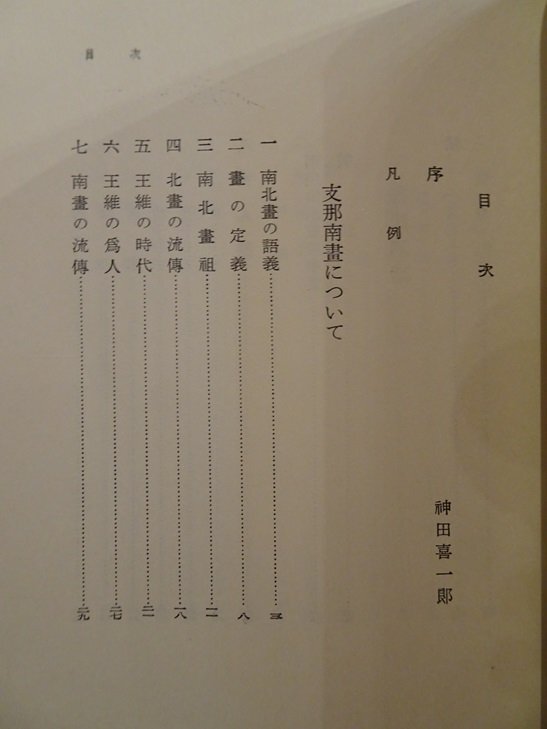 目次
序 神田喜一郎
凡例
支那南畫について
一 南北畫の語義……三
二 畫の定義……八
三 南北畫祖……一一
四 北畫の流傳……一八
五 王維の時代……二一
六 王維の爲人……二七
七 南畫の流傳……二九
目次